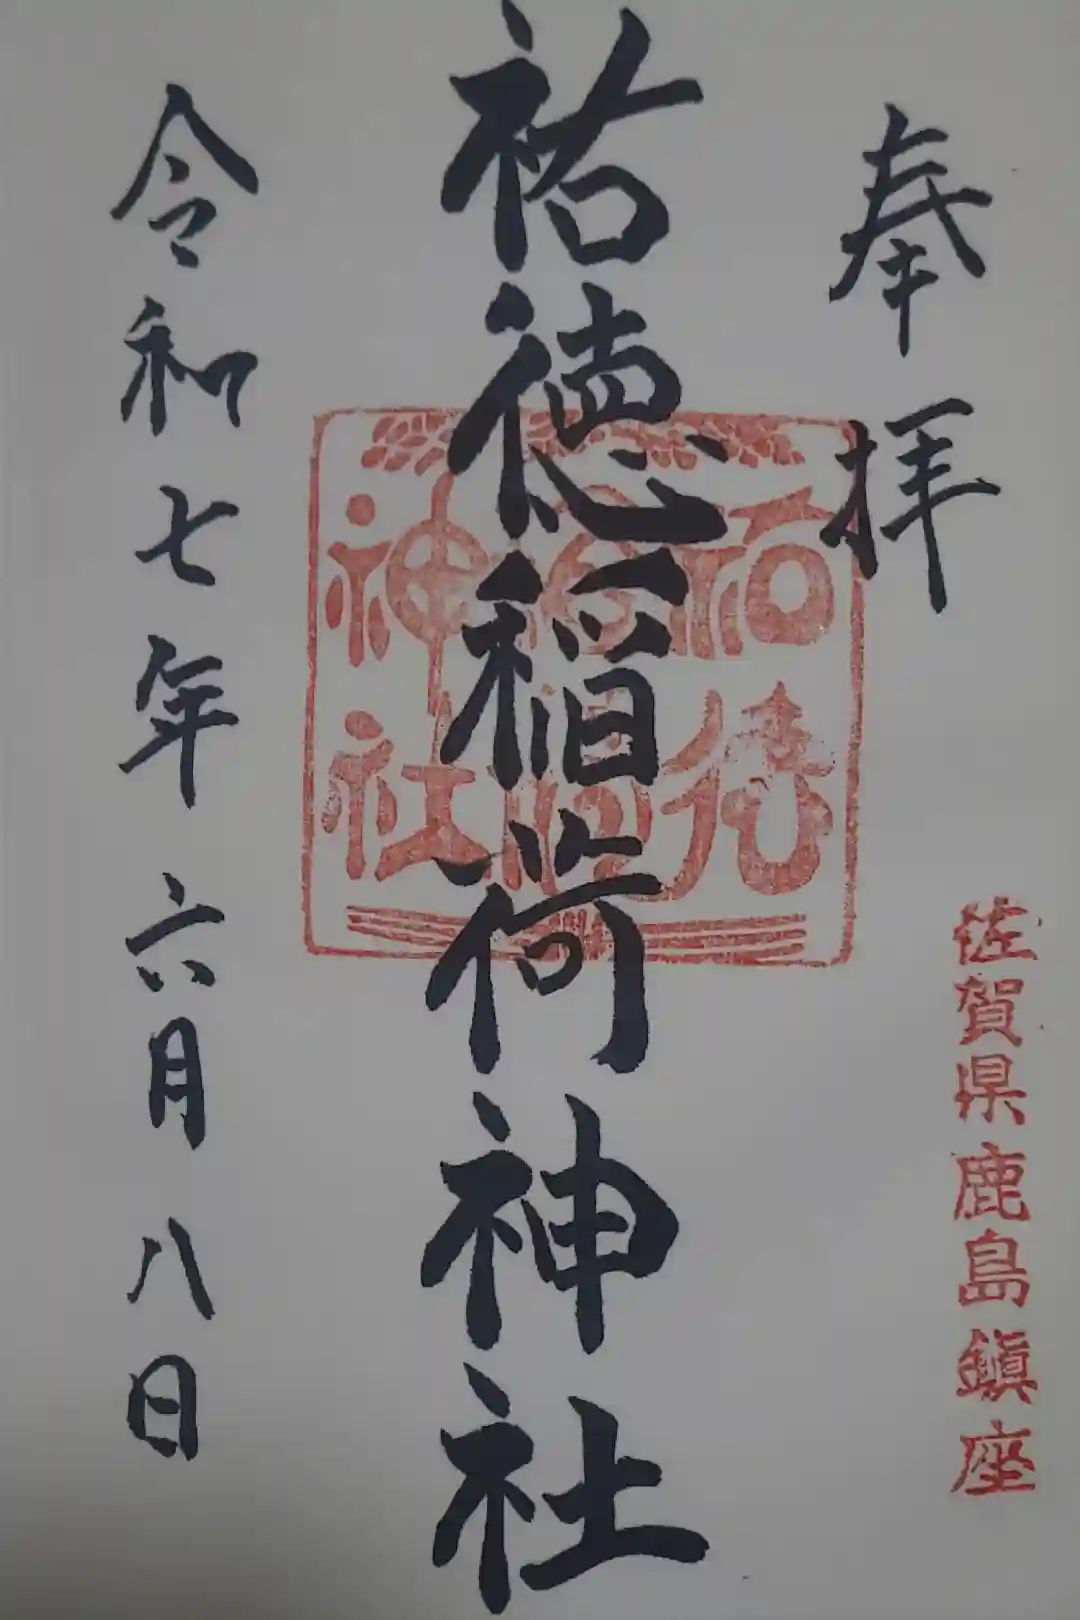 奉拝
佐賀県鹿島鎮座
祐徳稲荷神社
祐徳
稲荷
神社
令和七年六月八日